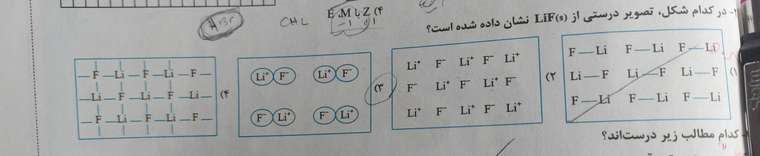 HBr
CHL
E ،M با Z (۴
۱- در کدام شکل، تصویر درستی از LiF(s) نشان داده شده است؟
(۱
F—Li F—Li F—Li
Li—F Li—F Li—F
F—Li F—Li F—Li
(۲
Li⁺ F⁻ Li⁺ F⁻ Li⁺
F⁻ Li⁺ F⁻ Li⁺ F⁻
Li⁺ F⁻ Li⁺ F⁻ Li⁺
(۳
Li⁺ F⁻ Li⁺ F⁻
F⁻ Li⁺ F⁻ Li⁺
(۴
—F—Li—F—Li—F—
—Li—F—Li—F—Li—
—F—Li—F—Li—F—
کدام مطالب زیر درست‌اند؟